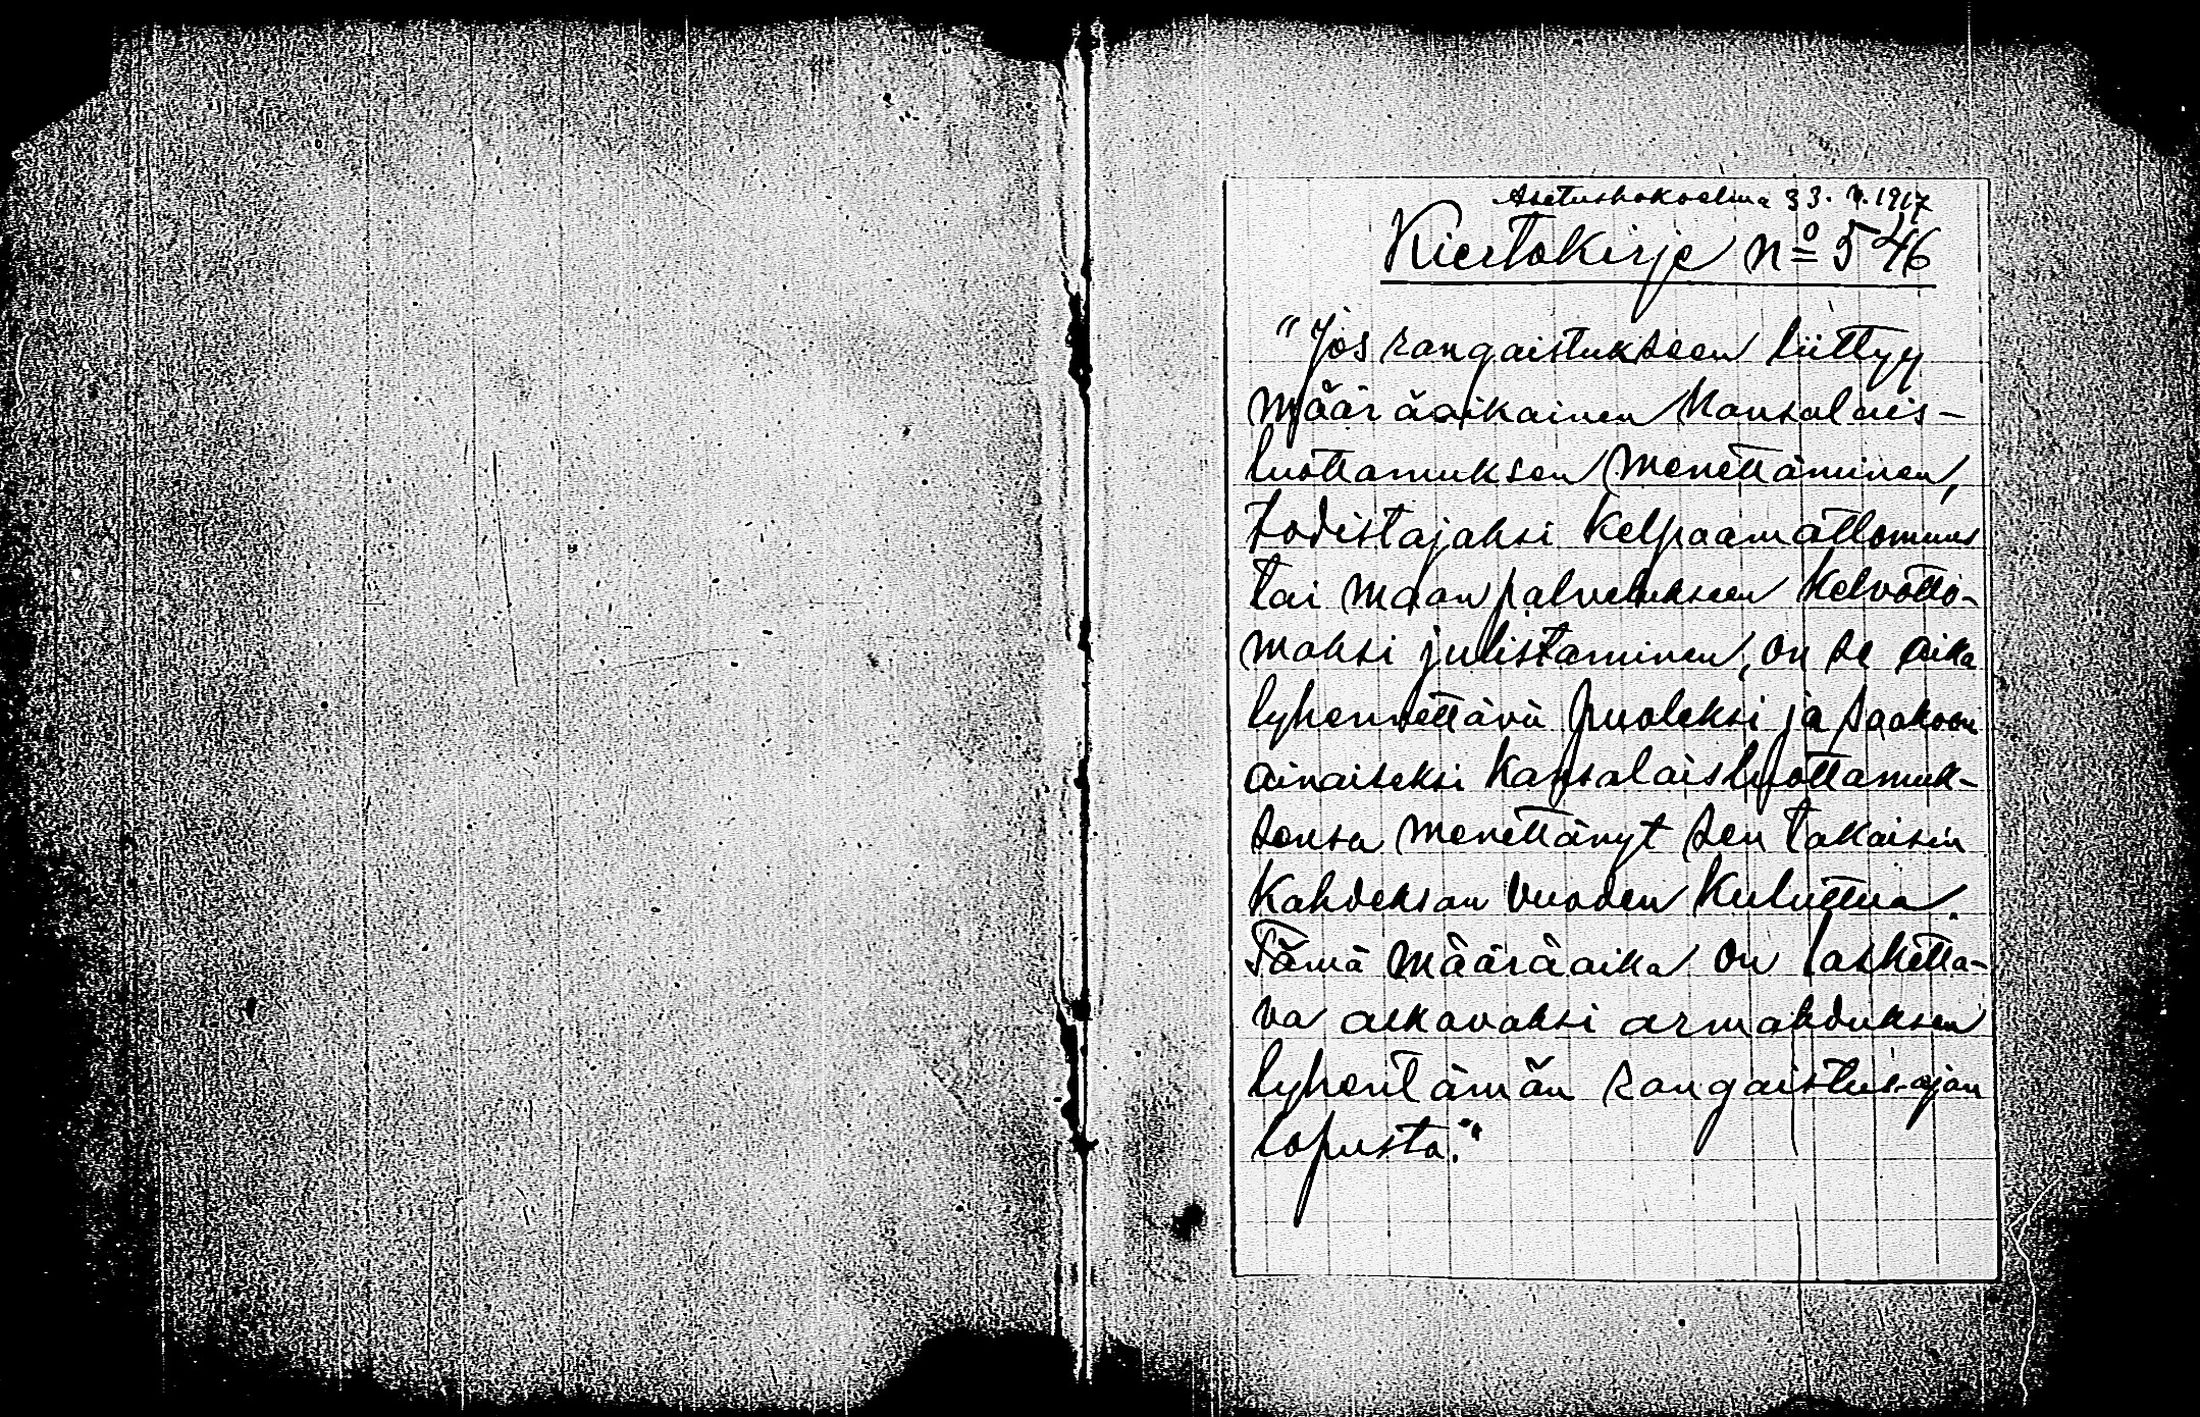 Asetuskokoelma 33. n. 1917
Kiertokirje No 546
"Jos rangaistukseen liittyy
määräaikainen kansalais-
luottamuksen menettäminen,
todistajaksi kelpaamattomuus
tai maanpalvelukseen kelvotto-
maksi julistaminen, on se aika
lyhennettävä puoleksi ja saakoon
ainaiseksi kansalaisluottamuk-
sensa menettänyt sen takaisin
kahdeksan vuoden kuluttua.
Tämä määräaika on laskетta-
va alkavaksi armahduksen
lyhentämän rangaistus-ajan
lopusta."